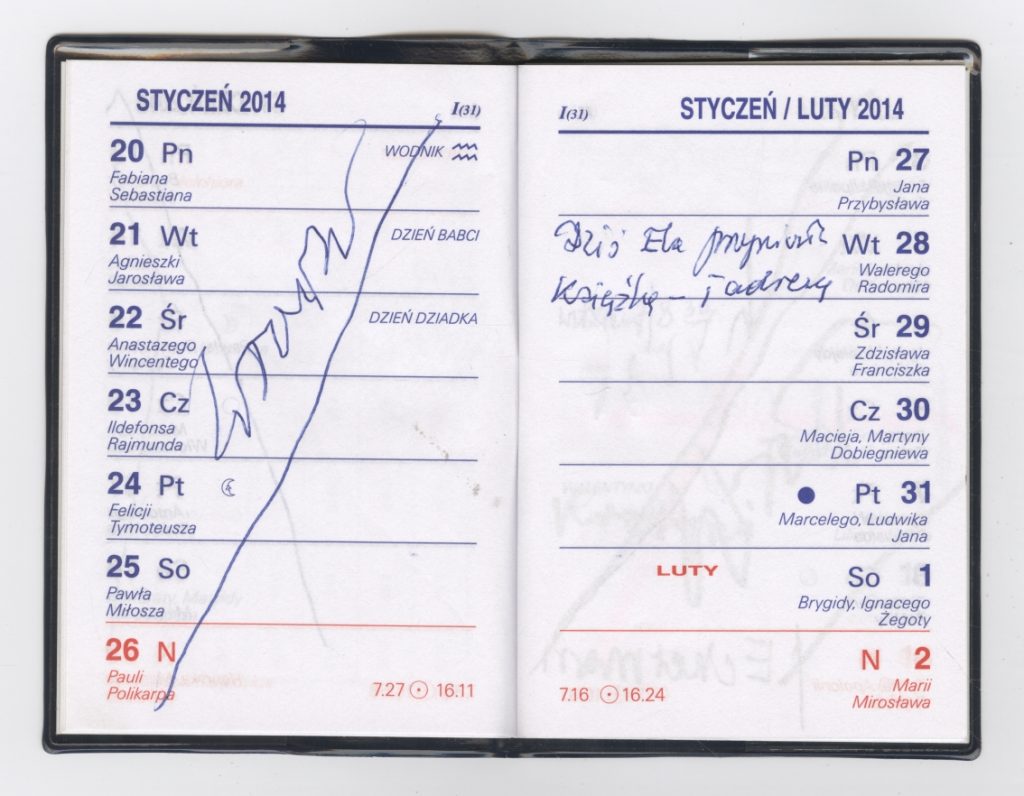 STYCZEŃ 2014 I(31)
20 Pn WODNIK
Fabiana
Sebastiana
21 Wt DZIEŃ BABCI
Agnieszki
Jarosława
22 Śr DZIEŃ DZIADKA
Anastazego
Wincentego
23 Cz
Ildefonsa
Rajmunda
24 Pt
Felicji
Tymoteusza
25 So
Pawła
Miłosza
26 N
Pauli
Polikarpa
7.27 16.11
I(31) STYCZEŃ / LUTY 2014
Pn 27
Jana
Przybysława
Dziś Ela
Książkę –
Wt 28
Walerego
Radomira
Śr 29
Zdzisława
Franciszka
Cz 30
Macieja, Martyny
Dobiegniewa
Pt 31
Marcelego, Ludwika
Jana
LUTY
So 1
Brygidy, Ignacego
Żegoty
N 2
Marii
Mirosława
7.16 16.24